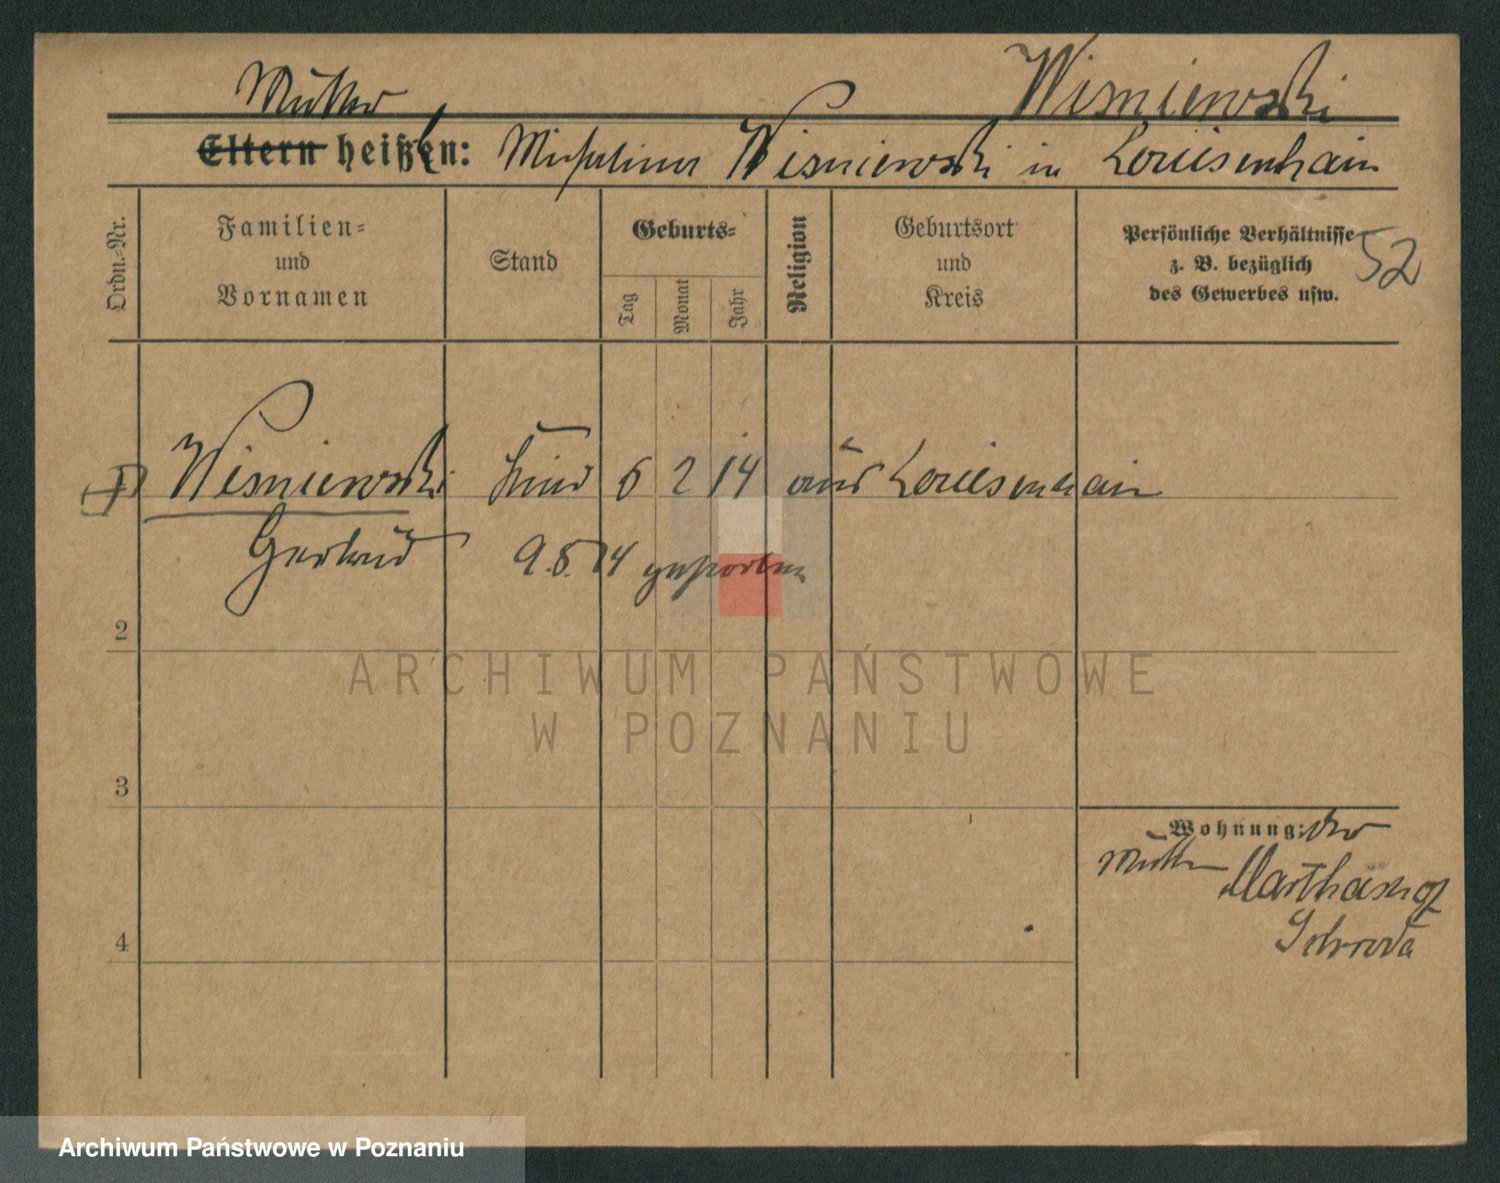 Wisniewski
Mutter
Eltern heißen: Michalina Wisniewski in Louisenhain
Ordn.-Nr.
Familien-
und
Vornamen
Stand
Geburts-
Tag
Monat
Jahr
Religion
Geburtsort
und
Kreis
Persönliche Verhältnisse
z. B. bezüglich
des Gewerbes usw.
52
Wisniewski Kind 6 2 14 aus Louisenhain
Gertrud 9.8.14 gestorben
2
ARCHIWUM PAŃSTWOWE
W POZNANIU
3
Wohnung: der
Mutter Marthashof
Schroda
4
Archiwum Państwowe w Poznaniu